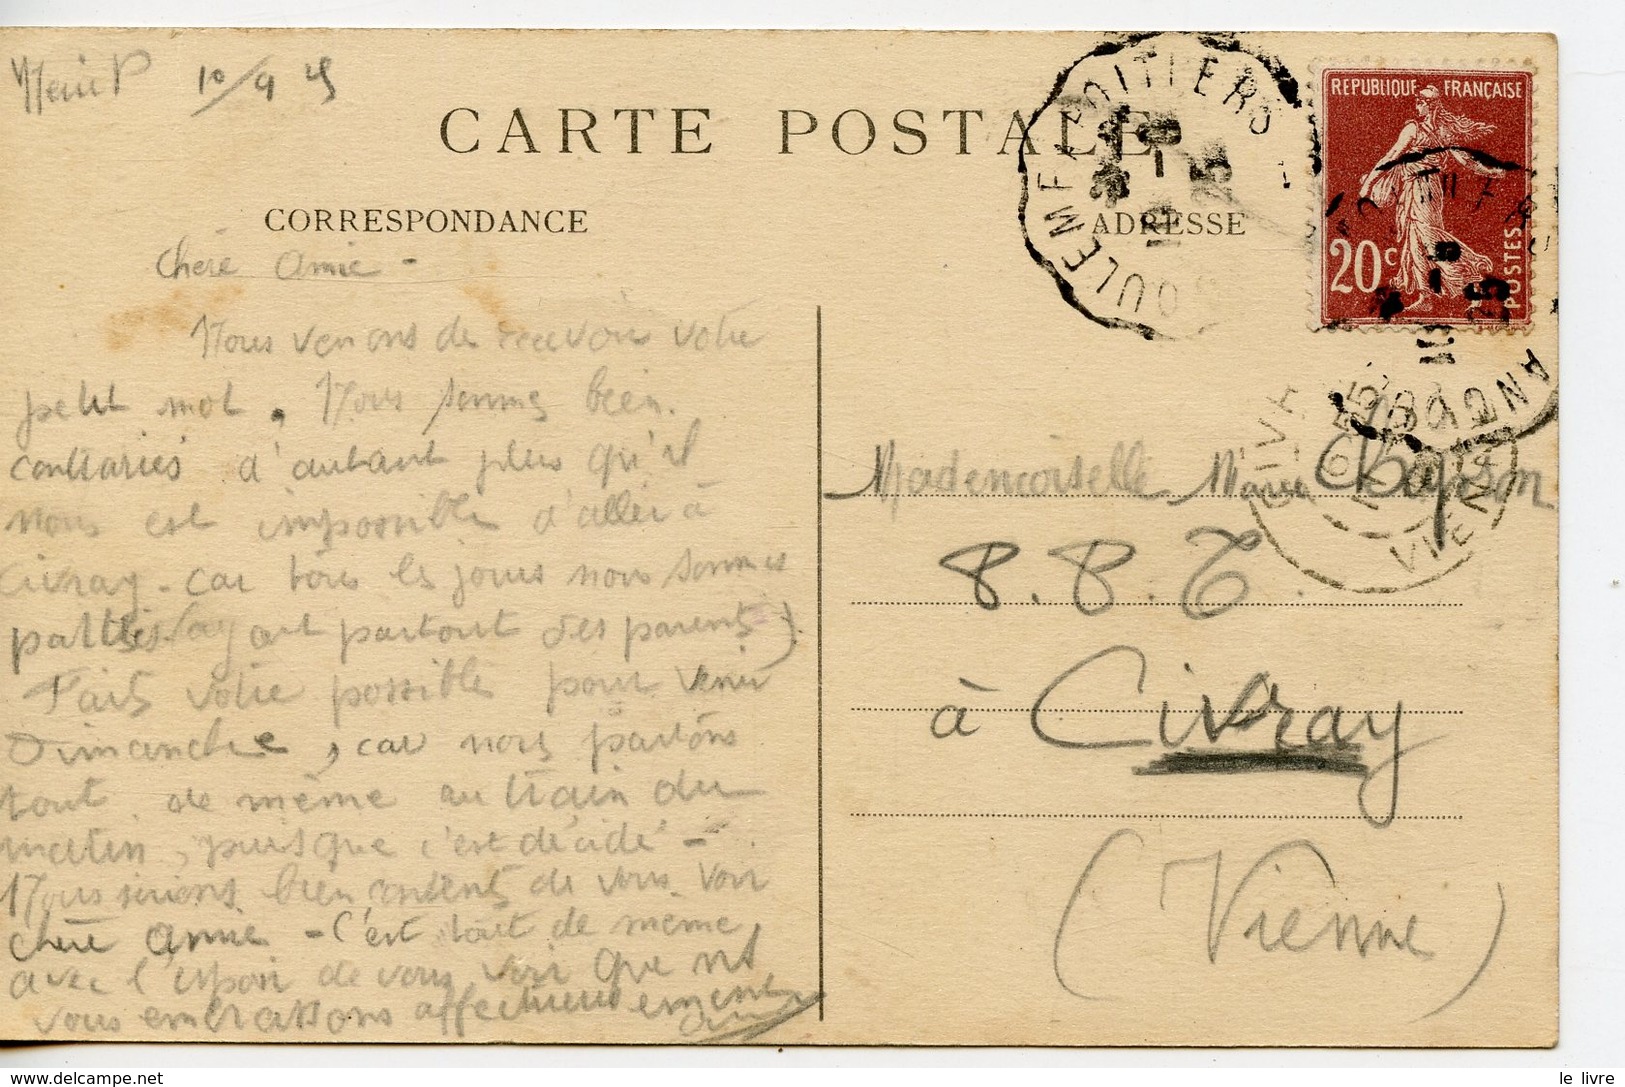 10/9 25
CARTE POSTALE
CORRESPONDANCE
ADRESSE
REPUBLIQUE FRANÇAISE
20c
POSTES
ANGOULEME A POITIERS
25
CIVRAY
VIENNE
Chère Amie -
Nous venons de recevoir votre
petit mot. Nous sommes bien
contrariés d'autant plus qu'il
nous est impossible d'aller à
Civray - car tous les jours nous sommes
parties (ayant partout des parents).
Faits votre possible pour venir
Dimanche, car nous partons
tout de même au train du
matin, puisque c'est décidé -
Nous serions bien contents de vous voir
chère amie - C'est tout de même
avec l'espoir de vous voir que ns
vous embrassons affectueusement
Mademoiselle Chapron
P.P.T.
à Civray
(Vienne)
le livre
www.delcampe.net